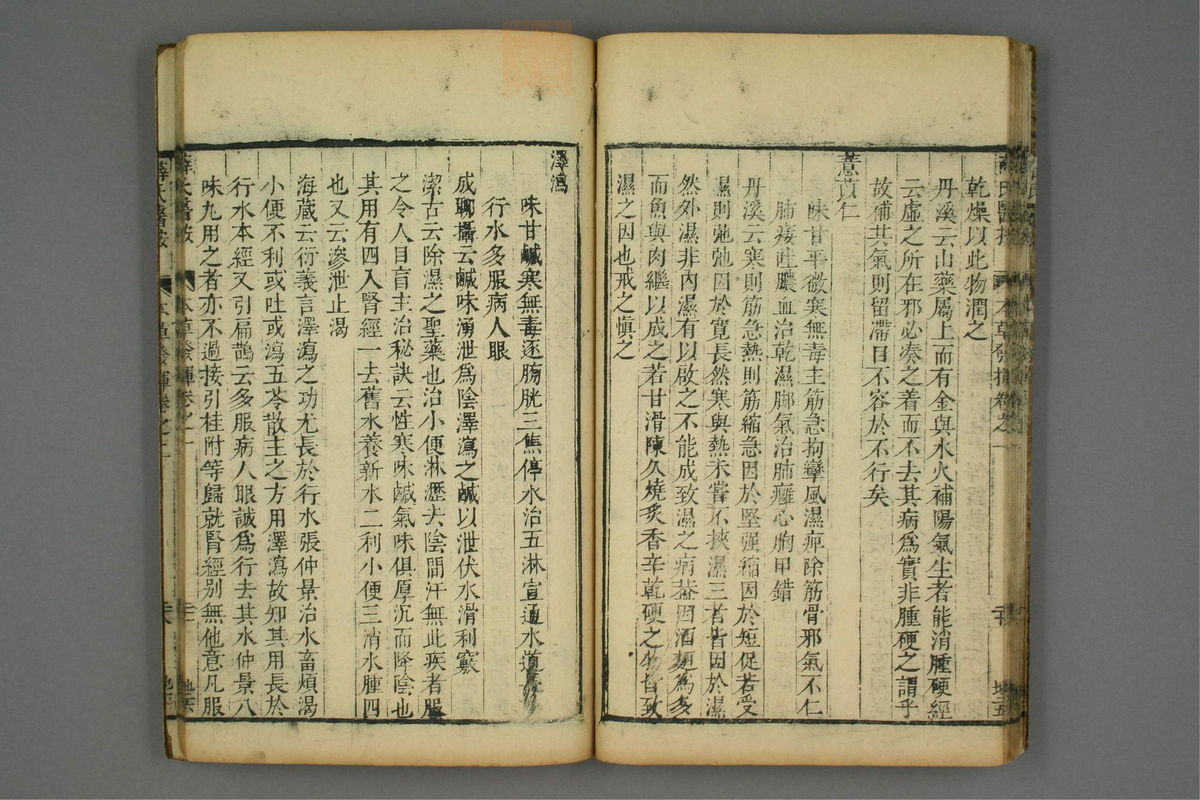 乾燥以此物潤之
丹溪云山藥屬土而有金與水火補陽氣生者能消腫硬經
云虛之所在邪必奏之着而不去其病爲實非腫硬之謂乎
故補其氣則留滯自不容於不行矣
薏苡仁
味甘平微寒無毒主筋急拘攣風濕痺除筋骨邪氣不仁
肺痿吐膿血治乾濕脚氣治肺癰心胸甲錯
丹溪云寒則筋急熱則筋縮急因於堅强縮因於短促若受
濕則弛弛因於寬長然寒與熱未嘗不挾濕三者皆因於濕
然外濕非內濕有以啟之不能成致濕之病蓋因酒麵爲多
而魚與肉繼以成之若甘滑陳久燒炙香辛乾硬之物皆致
濕之因也戒之愼之
澤瀉
味甘鹹寒無毒逐膀胱三焦停水治五淋宣通水道
行水多服病人眼
成聊攝云鹹味湧泄爲陰澤瀉之鹹以泄伏水滑利竅
潔古云除濕之聖藥也治小便淋瀝去陰間汗無此疾者服
之令人目盲主治秘訣云性寒味鹹氣味俱厚沉而降陰也
其用有四入腎經一去舊水養新水二利小便三消水腫四
也又云滲泄止渴
海蔵云衍義言澤瀉之功尤長於行水張仲景治水畜煩渴
小便不利或吐或瀉五苓散主之方用澤瀉故知其用長於
行水本經又引扁鵲云多服病人眼誠爲行去其水仲景八
味丸用之者亦不過接引桂附等歸就腎經别無他意凡服
薛氏醫按
本草發揮卷之一